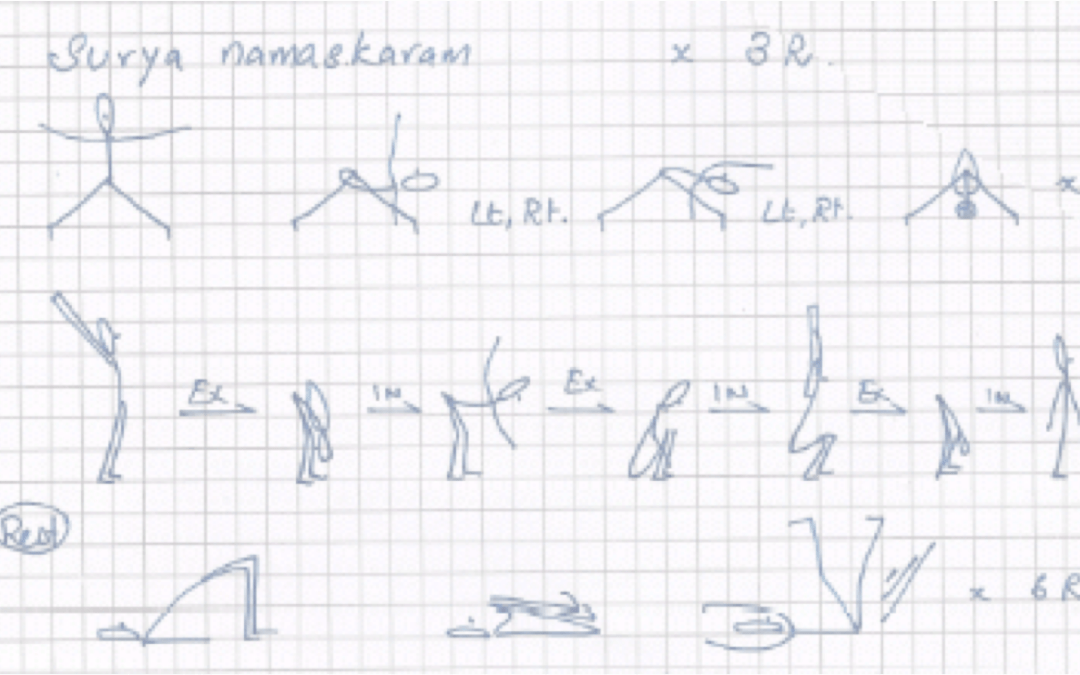 Surya namaskaram x 3 R.
Lt, Rt. Lt, Rt. x
Ex IN Ex IN Ex IN
Rest
x 6 R